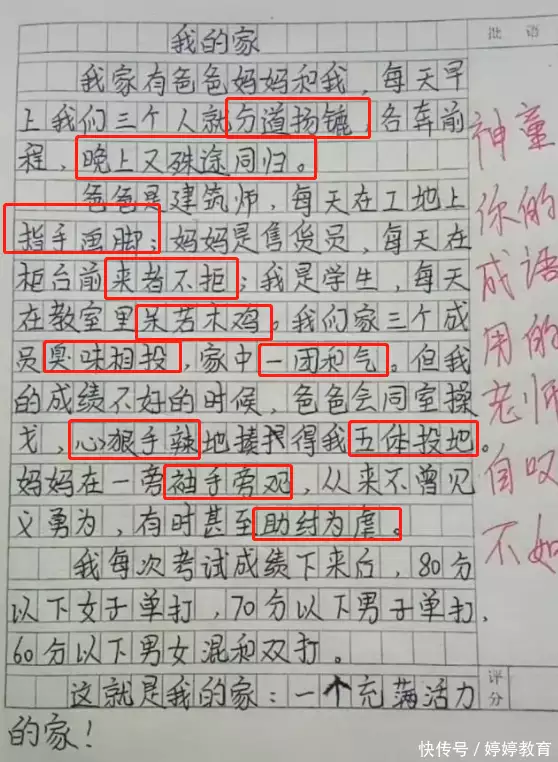 我的家
我家有爸爸妈妈和我，每天早
上我们三个人就分道扬镳，各奔前
程，晚上又殊途同归。
爸爸是建筑师，每天在工地上
指手画脚；妈妈是售货员，每天在
柜台前来者不拒；我是学生，每天
在教室里呆若木鸡。我们家三个成
员臭味相投，家中一团和气。但我
的成绩不好的时候，爸爸会同室操
戈，心狠手辣地揍得我五体投地。
妈妈在一旁袖手旁观，从来不曾见
义勇为，有时甚至助纣为虐。
我每次考试成绩下来后，80分
以下女子单打，70分以下男子单打，
60分以下男女混和双打。
这就是我的家：一个充满活力
的家！
批语
神童
你的
成语
用的
老师
自叹
不如
评分
快传号／婷婷教育